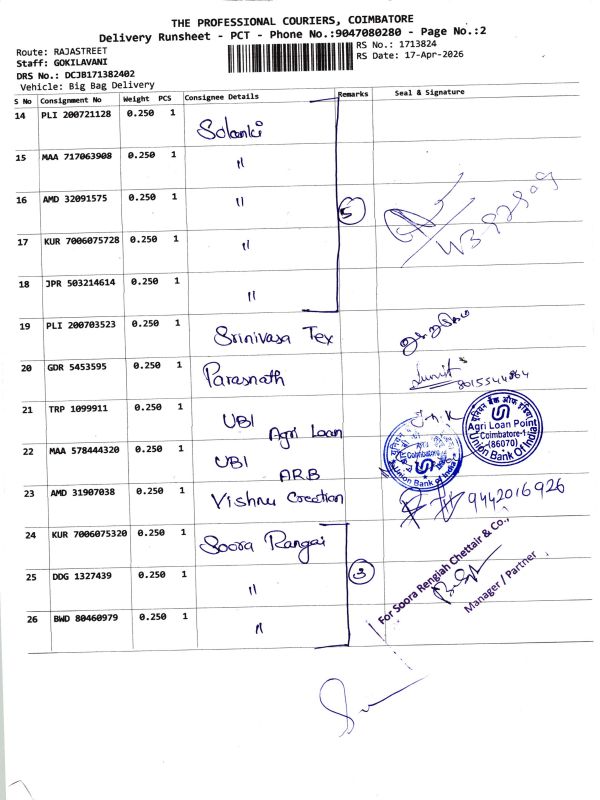 THE PROFESSIONAL COURIERS, COIMBATORE
Delivery Runsheet - PCT - Phone No.:9047080280 - Page No.:2
Route: RAJASTREET
RS No.: 1713824
Staff: GOKILAVANI
RS Date: 17-Apr-2026
DRS No.: DCJB171382402
Vehicle: Big Bag Delivery
S No Consignment No Weight PCS Consignee Details Remarks Seal & Signature
14 PLI 200721128 0.250 1 Solanki
15 MAA 717063908 0.250 1 "
16 AMD 32091575 0.250 1 " 5
17 KUR 7006075728 0.250 1 "
18 JPR 503214614 0.250 1 "
19 PLI 200703523 0.250 1 Srinivasa Tex
20 GDR 5453595 0.250 1 Parasnath Sumit
21 TRP 1099911 0.250 1 UBI Agri Loan
22 MAA 578444320 0.250 1 UBI ARB
यूनियन बैंक ऑफ इंडिया
Agri Loan Point
Coimbatore-1
(86070)
Union Bank Of India
Coimbatore
Union Bank Of India
23 AMD 31907038 0.250 1 Vishnu Creation 9442016926
24 KUR 7006075320 0.250 1 Soora Rangai
25 DDG 1327439 0.250 1 " 3
26 BWD 80460979 0.250 1 "
For Soora Rengiah Chettair & Co.,
Manager / Partner